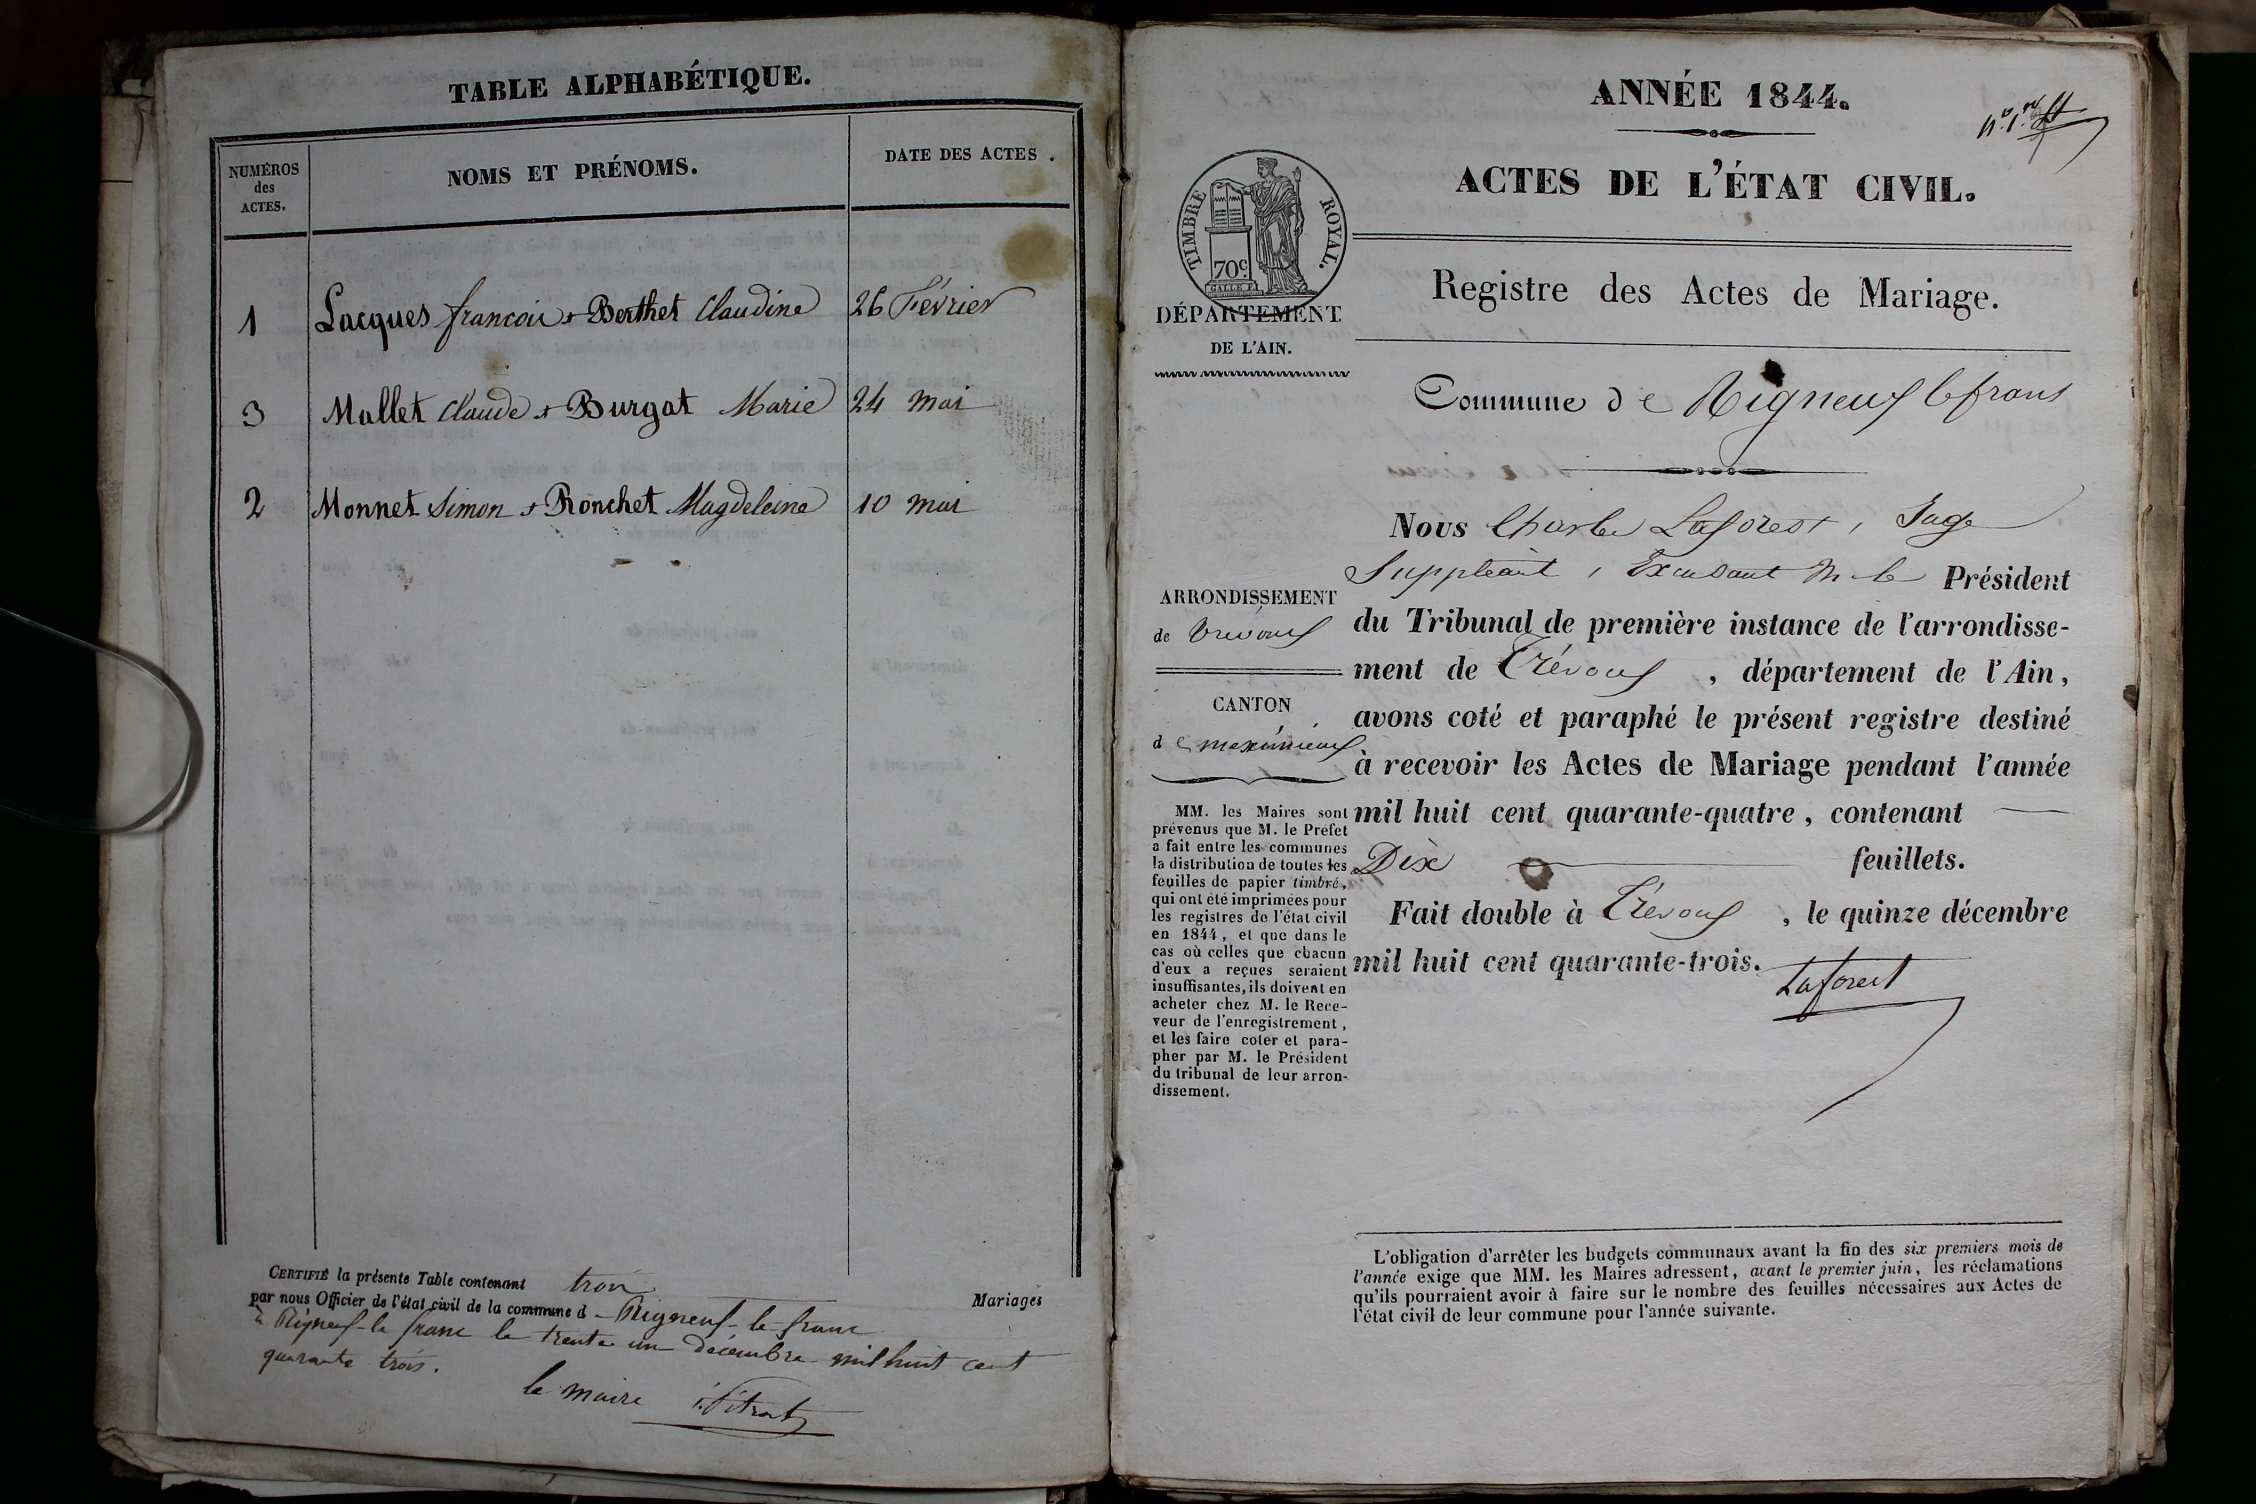 TABLE ALPHABÉTIQUE.
NUMÉROS
des
ACTES.
NOMS ET PRÉNOMS.
DATE DES ACTES.
1 Lacques françois & Berthet Claudine 26 Février
3 Mallet Claude & Burgat Marie 24 mai
2 Monnet Simon & Ronchet Magdeleine 10 mai
CERTIFIÉ la présente Table contenant trois Mariages
par nous Officier de l'état civil de la commune d Rigneux-le-franc
à Rigneux-le franc le trente un décembre mil huit cent
quarante trois.
le maire
ANNÉE 1844.
ACTES DE L'ÉTAT CIVIL.
TIMBRE ROYAL.
70c.
DÉPARTEMENT
DE L'AIN.
Registre des Actes de Mariage.
Commune de Rigneux lefranc
ARRONDISSEMENT
de Trévoux
CANTON
de meximieux
MM. les Maires sont
prévenus que M. le Préfet
a fait entre les communes
la distribution de toutes les
feuilles de papier timbré,
qui ont été imprimées pour
les registres de l'état civil
en 1844, et que dans le
cas où celles que chacun
d'eux a reçues seraient
insuffisantes, ils doivent en
acheter chez M. le Rece-
veur de l'enregistrement,
et les faire coter et para-
pher par M. le Président
du tribunal de leur arron-
dissement.
Nous Charles Laforest, Juge
Suppléant, Excusant M. le Président
du Tribunal de première instance de l'arrondisse-
ment de Trévoux, département de l'Ain,
avons coté et paraphé le présent registre destiné
à recevoir les Actes de Mariage pendant l'année
mil huit cent quarante-quatre, contenant
Dix feuillets.
Fait double à Trévoux, le quinze décembre
mil huit cent quarante-trois.
Laforest
L'obligation d'arrêter les budgets communaux avant la fin des six premiers mois de
l'année exige que MM. les Maires adressent, avant le premier juin, les réclamations
qu'ils pourraient avoir à faire sur le nombre des feuilles nécessaires aux Actes de
l'état civil de leur commune pour l'année suivante.